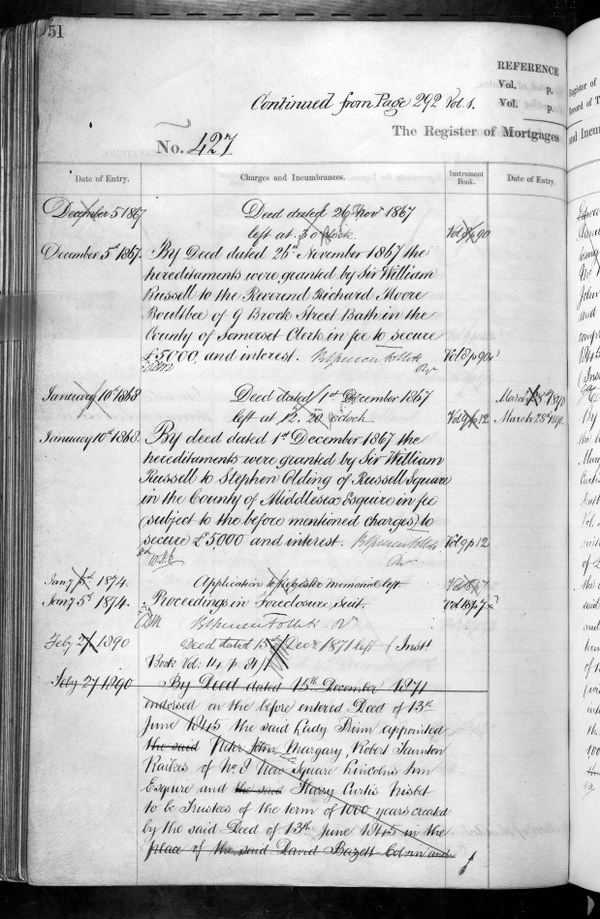 51
REFERENCE
Vol. p.
Continued from Page 292 Vol 1.
Vol. p.
No. 427
The Register of Mortgages
Date of Entry.
Charges and Incumbrances.
Instrument Book.
Date of Entry.
December 5 1867
Deed dated 26 Nov 1867
left at 3 o'clock
Vol 8 p 90
December 5th 1867.
By Deed dated 26th November 1867 the
hereditaments were granted by Sir William
Russell to the Reverend Richard Moore
Boultbee of 9 Brock Street Bath in the
County of Somerset Clerk in fee to secure
£5000 and interest.
Vol 8 p 90
January 10th 1868
Deed dated 1st December 1867
left at 12.20 o'clock
Vol 9 p 12
March 28th 1890
March 28th 1890.
January 10th 1868.
By deed dated 1st December 1867 the
hereditaments were granted by Sir William
Russell to Stephen Olding of Russell Square
in the County of Middlesex Esquire in fee
(subject to the before mentioned charges) to
secure £5000 and interest.
Vol 9 p 12
Jany 5th 1874.
Application to Register memorial left
Jany 5th 1874.
Proceedings in Foreclosure Suit.
Feby 27 1890
Deed dated 15 Decr 1871 left (Inst
Book Vol: 44 p. 81)
Feby 27 1890
By Deed dated 15th December 1871
endorsed on the before entered Deed of 13th
June 1845 the said Lady Prim appointed
the said Victor John Margary, Robert Taunton
Raikes of No. 8 New Square Lincolns Inn
Esquire and the said Harry Curtis Nisbet
to be Trustees of the term of 1000 years created
by the said Deed of 13th June 1845 in the
place of the said David Bazett Colvin and